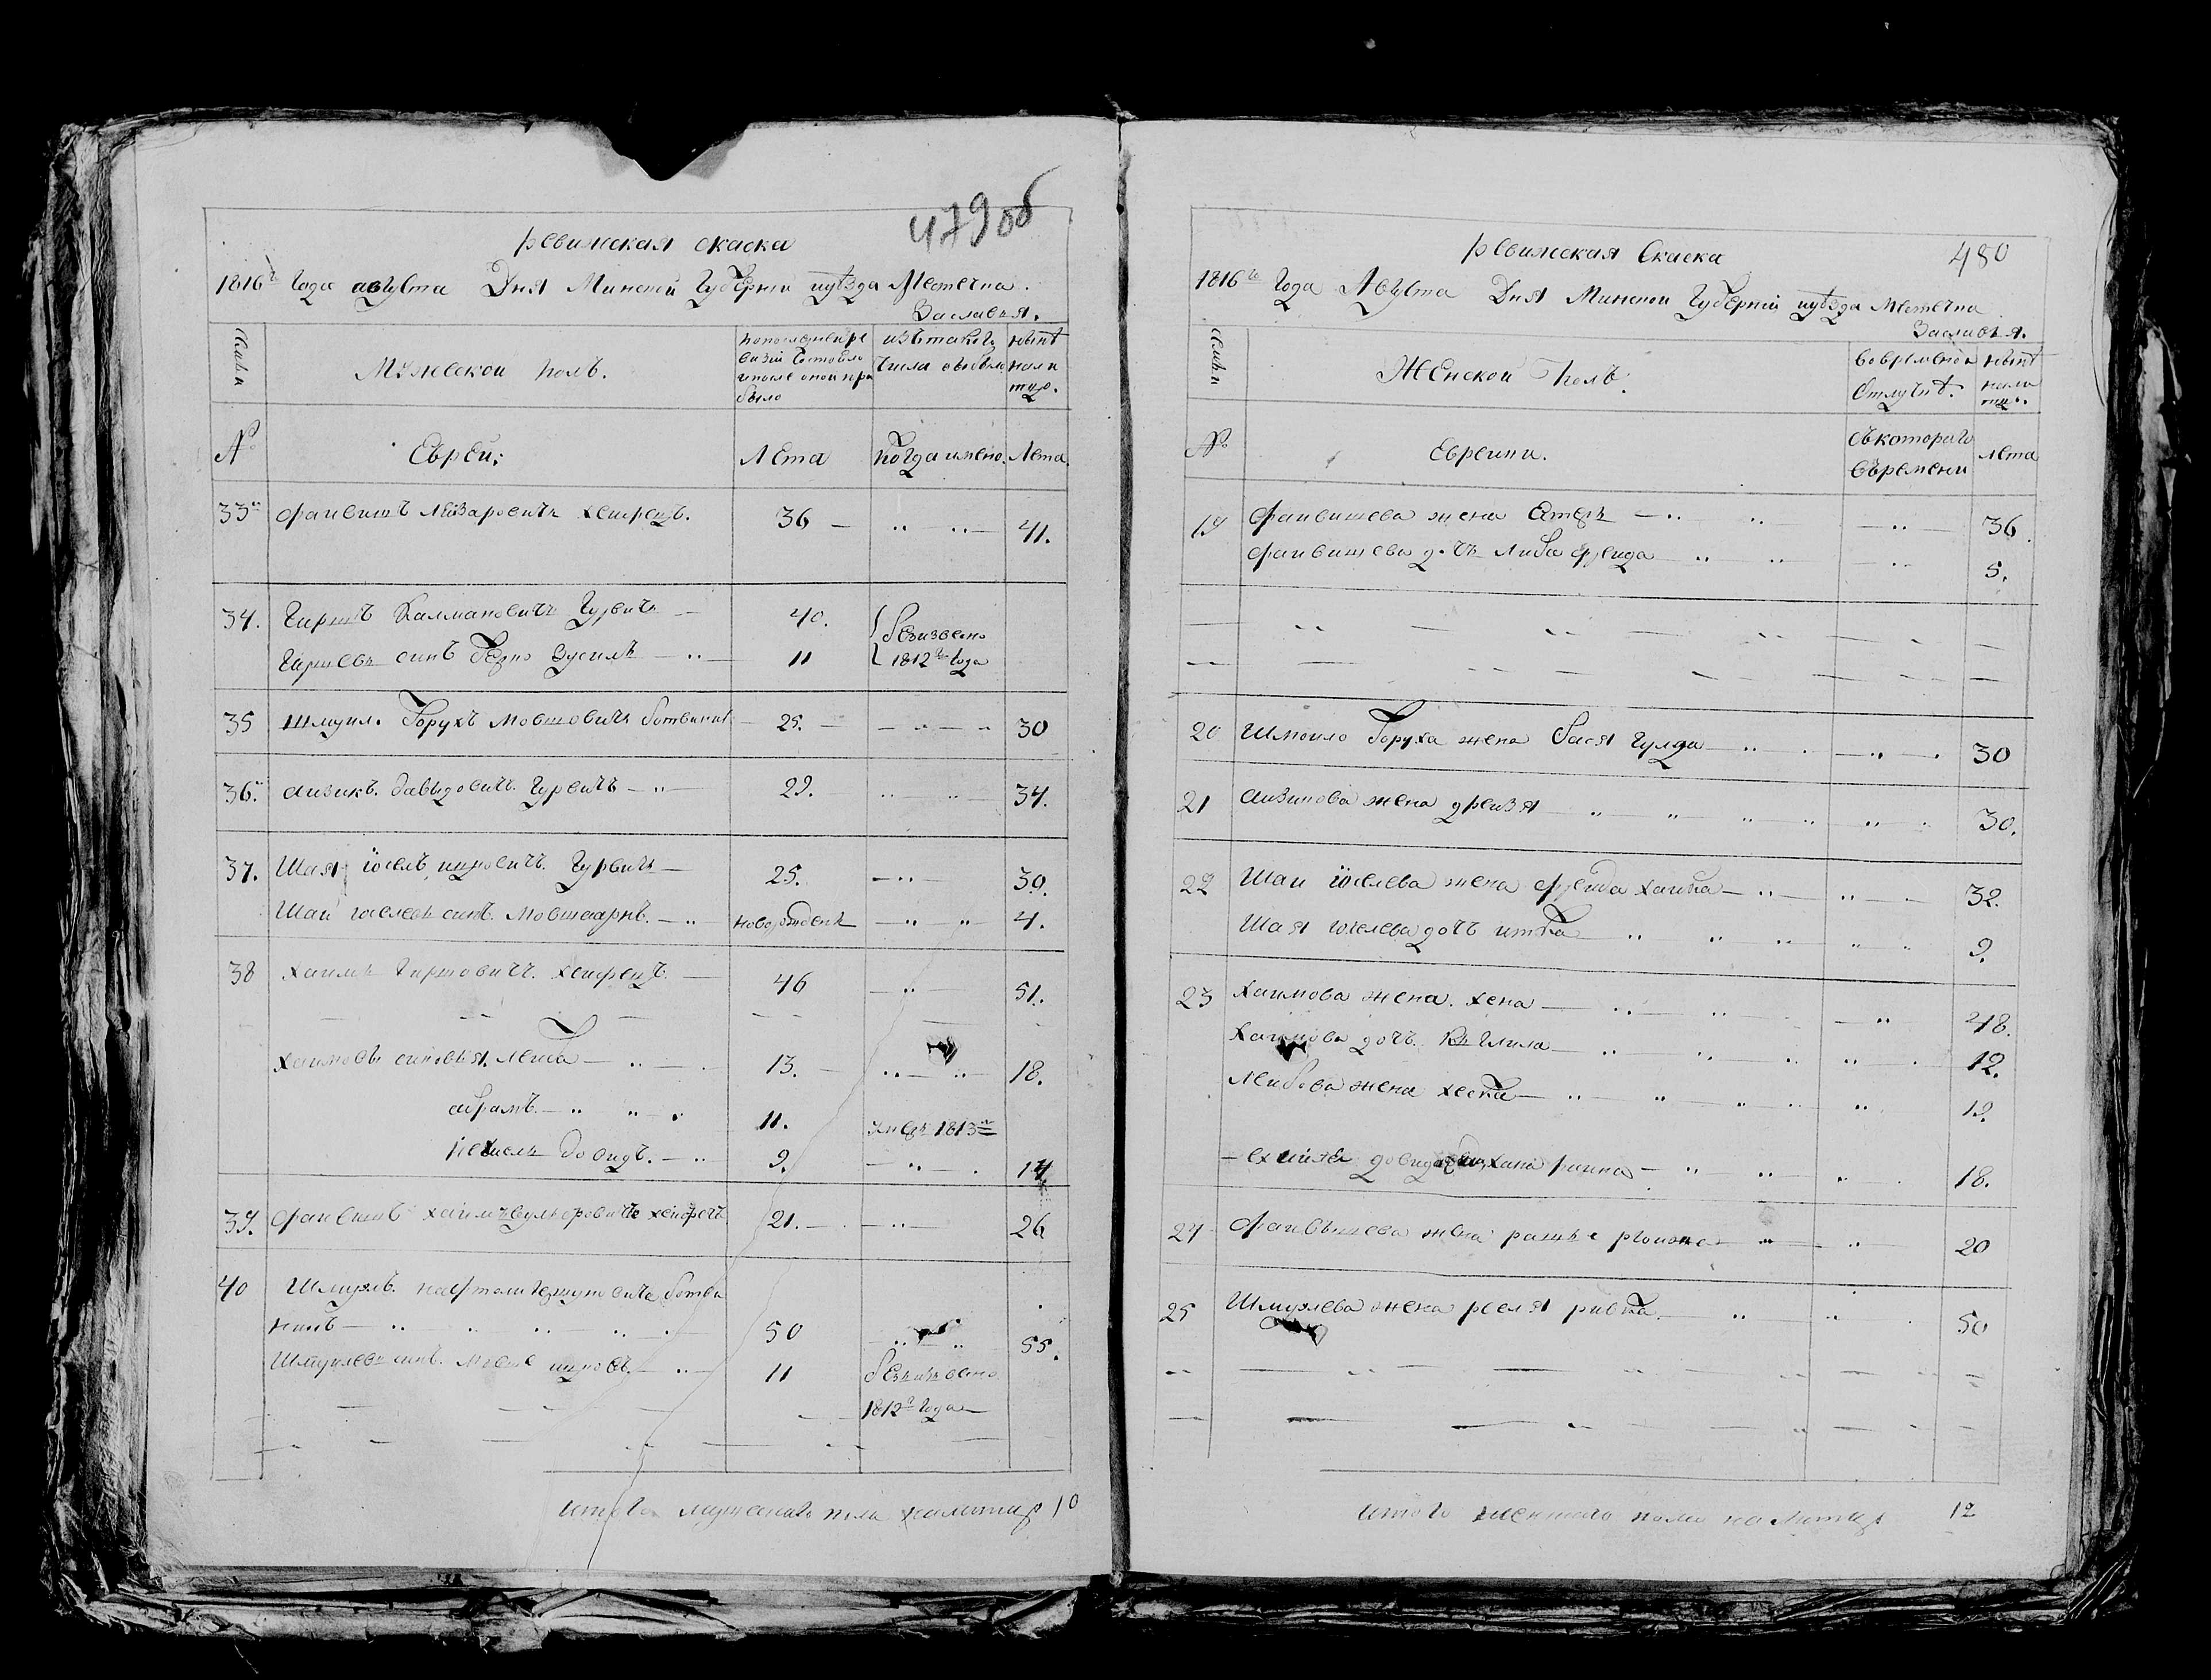 479об
ревижская скаска
1816го Года августа Дня Минской Губернии иуѣзда Местечка
Заславья.
Семьи
Мужеской полъ.
попоследнеи ре
визии состояло
ипосле онои при
было
изътакого
числа выбыло
нынѣ
нали
цо.
№
Евреи:
Лета
когда имено.
Лета.
33й фаивишъ Лейзаровичъ хеифецъ.
36
41.
34. Гиршъ Калмановичъ Гурвичъ
40.
безизвесно
Гиршевъ синъ берко Зусиль
11
1812го Года
35 Шмуил. Борухъ Мовшовичъ ботвиник
25.
30
36й. аизикъ. давыдовичъ. Гурвичъ
29.
34.
37. Шая іоселъ ицковичъ. Гурвичъ
25.
30.
Шаи іоселевъ синъ. Мовшаарнъ.
новорожденъ
4.
38 хаимъ Гиршовичъ. хеифецъ.
46
51.
хаимовы синовья. Леиба
13.
18.
абрамъ.
11.
умеръ 1813го
довидъ.
9.
14
39. фаивишъ хаимъ вульфовичъ хеифецъ
21.
26
40 Шмуэлъ. нафтали ботви
никъ
50
55.
Шмуилевъ синъ. ицковъ.
11
безъизвесно
1812го Года
итого мужескаго пола налицо 10
480
ревижская Скаска
1816го Года Августа Дня Минской Губернии иуѣзда Местечка
Заславья.
Семьи
Женской полъ.
вовременои
отлучкѣ.
нынѣ
нали
цо.
№
Евреики.
съкотораго
въремени
лета
19 фаивишева жена Естеръ
36
фаивишева дочъ Либа фреида
5.
20 Шмоило Боруха жена бася Гулда
30
21 аизикова жена дреизя
30.
22 Шаи іоселева жена фреида хаика
32.
Шая іоселева дочъ итка
9.
23 хаимова жена. хена
48.
хаимова дочъ.
12.
Леибова жена хеска
19.
довида хана раина
18.
24 фаивышева жена
20
25 Шмуэлева жена рееля ривка
50
итого женскаго пола налицо 12